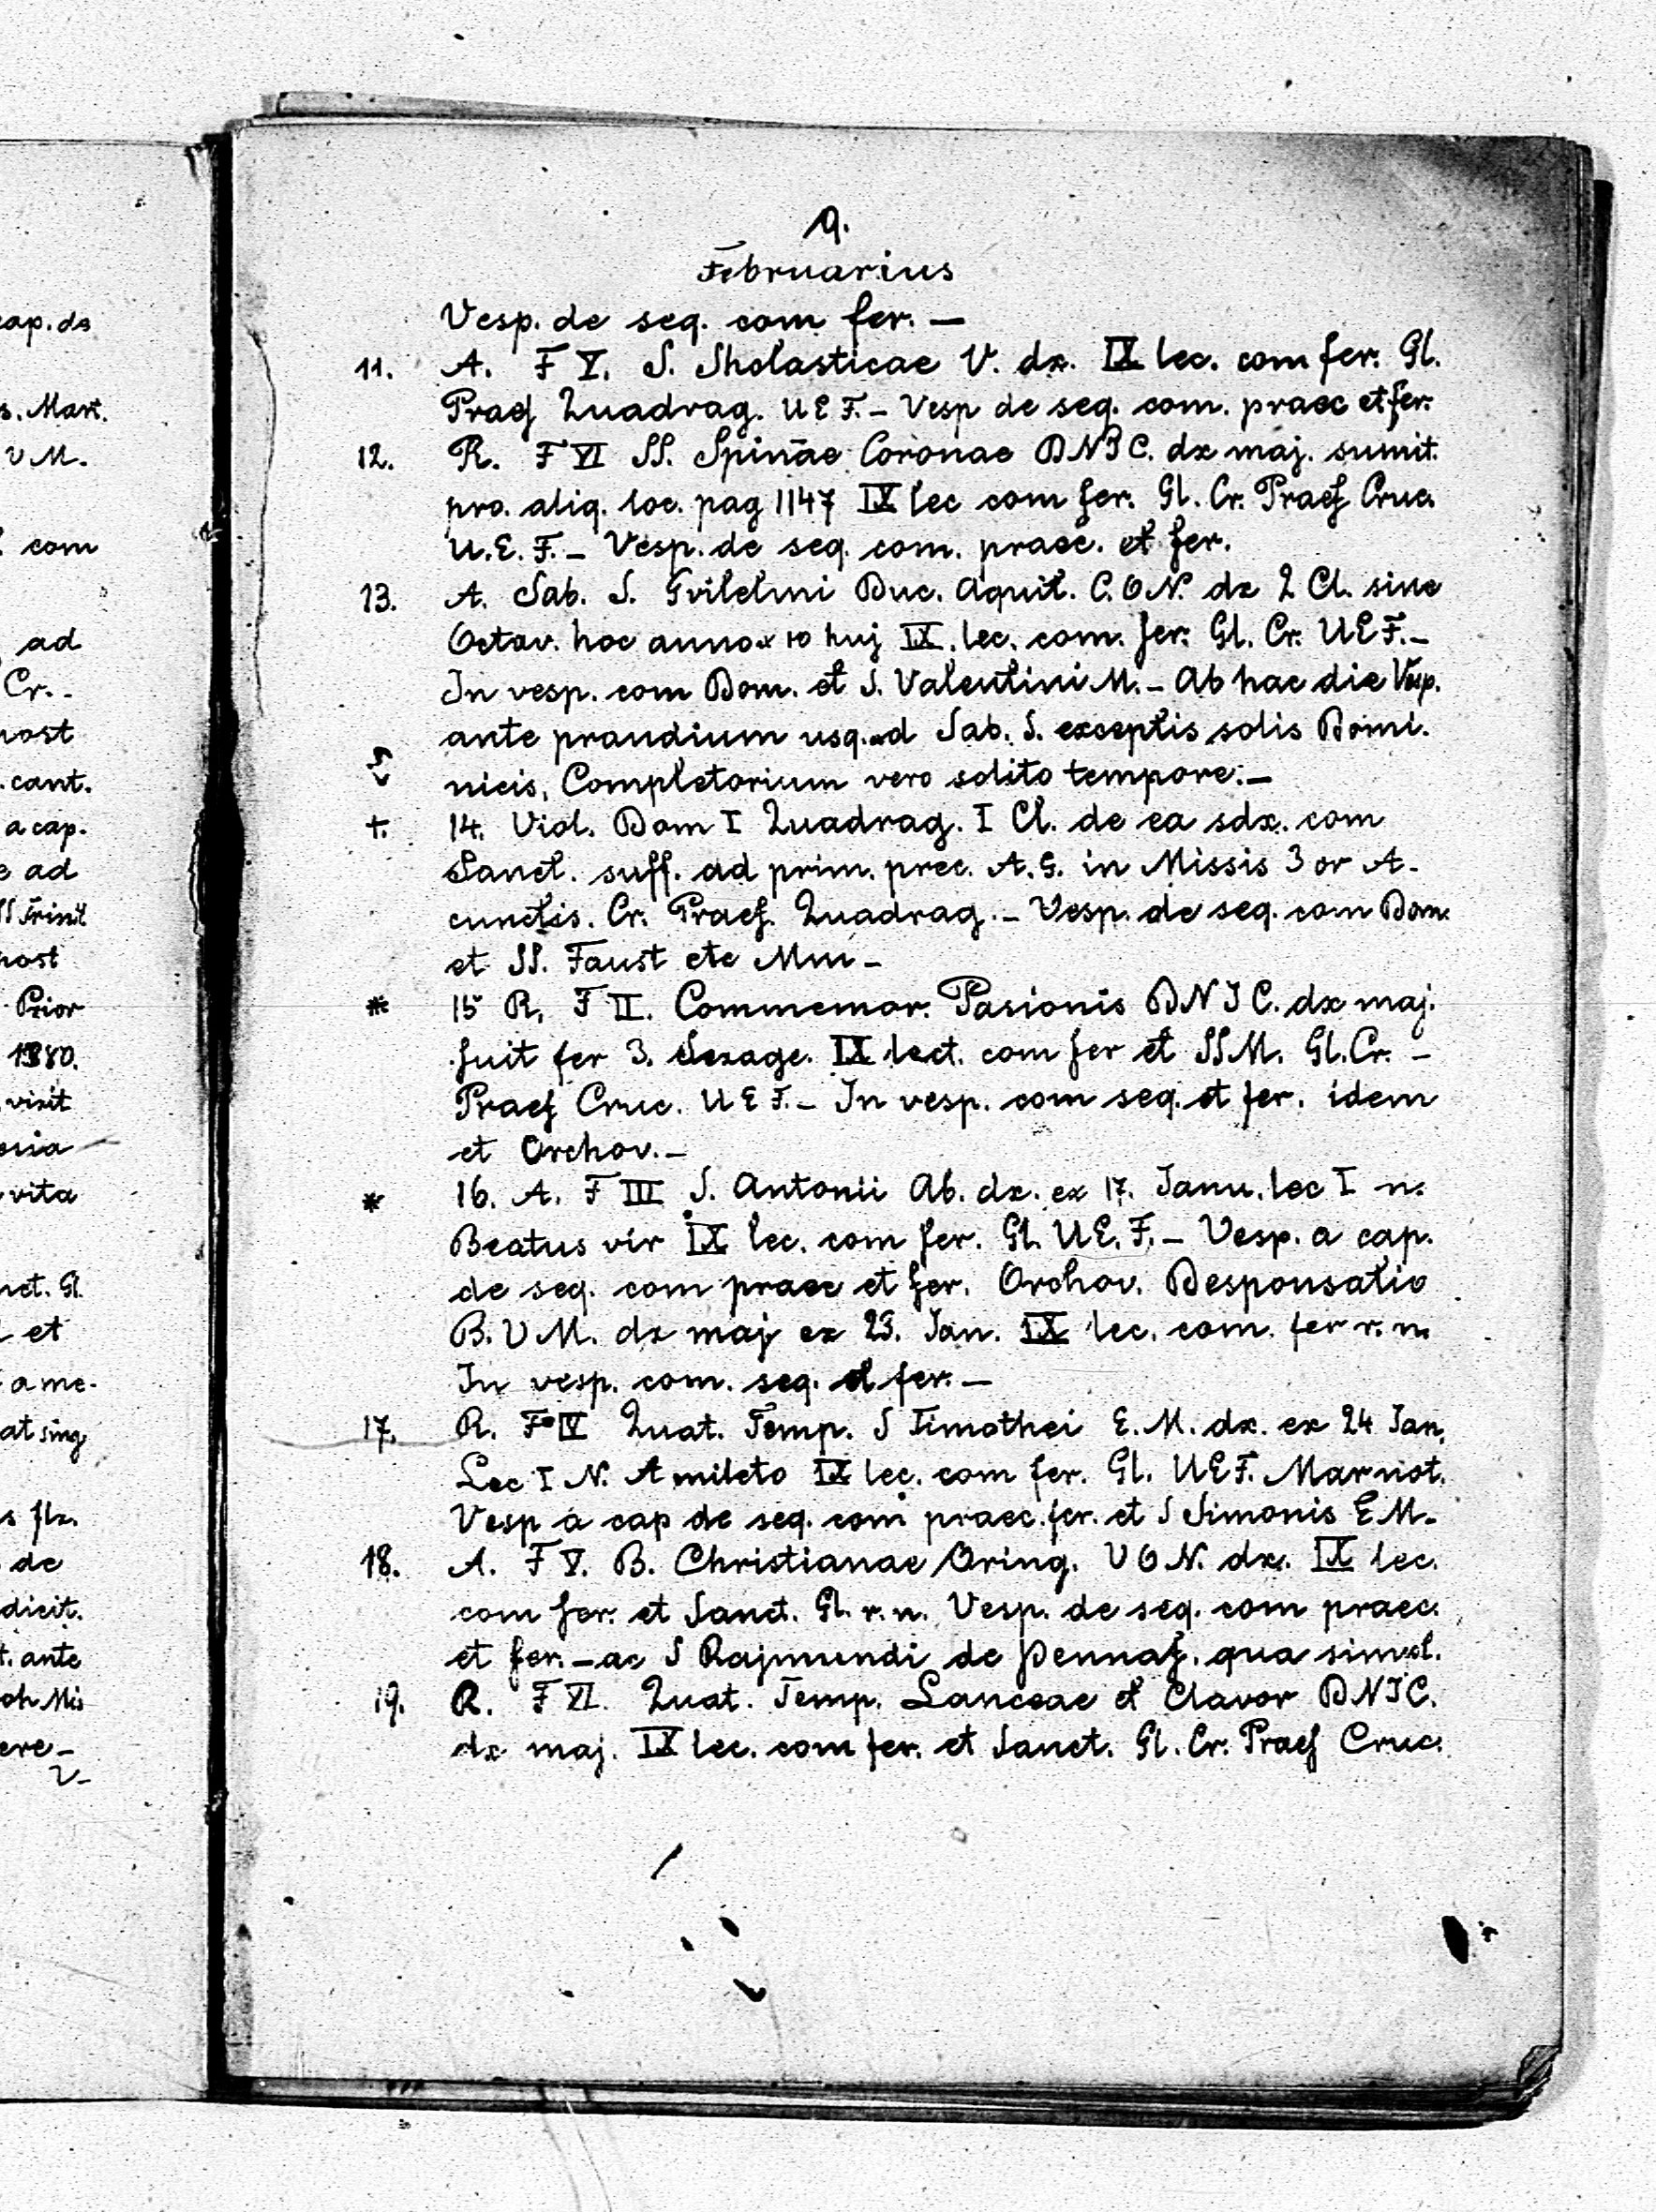 9.
Februarius
Vesp. de seq. com fer. —
11. A. F V. S. Sholasticae V. dx. IX lec. com fer. Gl.
Praef Quadrag. U E F. – Vesp de seq. com. praec et fer.
12. R. F VI SS. Spinae Coronae DNJC. dx maj. sumit.
pro. aliq. loc. pag 1147 IX lec com fer. Gl. Cr. Praef Cruc
U. E. F. – Vesp. de seq. com. praec. et fer.
13. A. Sab. S. Gvilelmi Duc. Aquit. C. O N. dx 2 Cl. sine
Octav. hoc anno x 10 huj IX. lec. com. fer. Gl. Cr. U E F. –
In vesp. com Dom. et S. Valentini M. – Ab hac die Vesp.
ante prandium usq. ad Sab. S. exceptis solis Domi.
nicis, Completorium vero solito tempore. –
†. 14. Viol. Dom I Quadrag. I Cl. de ea sdx. com
Sanct. suff. ad prim. prec. A. G. in Missis 3 or A.
cunctis. Cr. Praef. Quadrag. – Vesp. de seq. com Dom.
et SS. Faust etc Mm –
* 15 R. F II. Commemor. Pasionis DNJC. dx maj.
fuit fer 3. Sexage. IX lect. com fer et SSM. Gl. Cr. –
Praef Cruc. U E F. – In vesp. com seq. et fer. idem
et Orchov. –
* 16. A. F III S. Antonii Ab. dx. ex 17. Janu. lec I n.
Beatus vir IX lec. com fer. Gl. U E. F. – Vesp. a cap.
de seq. com praec et fer. Orchov. Desponsatio
B. V M. dx maj ex 23. Jan. IX lec. com. fer r. n.
In vesp. com. seq. et fer. —
17. R. F IV Quat. Temp. S Timothei E. M. dx. ex 24 Jan,
Lec I N. A mileto IX lec. com fer. Gl. U E F. Mar not.
Vesp a cap de seq. com praec. fer. et S Simonis E M.
18. A. F V. B. Christianae Oring. V O N. dx. IX lec.
com fer. et Sanct. Gl. r. n. Vesp. de seq. com praec.
et fer. – ac S Rajmundi de Pennaf. qua simpl.
19. R. F VI. Quat. Temp. Lanceae et Clavor DNJC.
dx maj. IX lec. com fer. et Sanct. Gl. Cr. Praef Cruc.